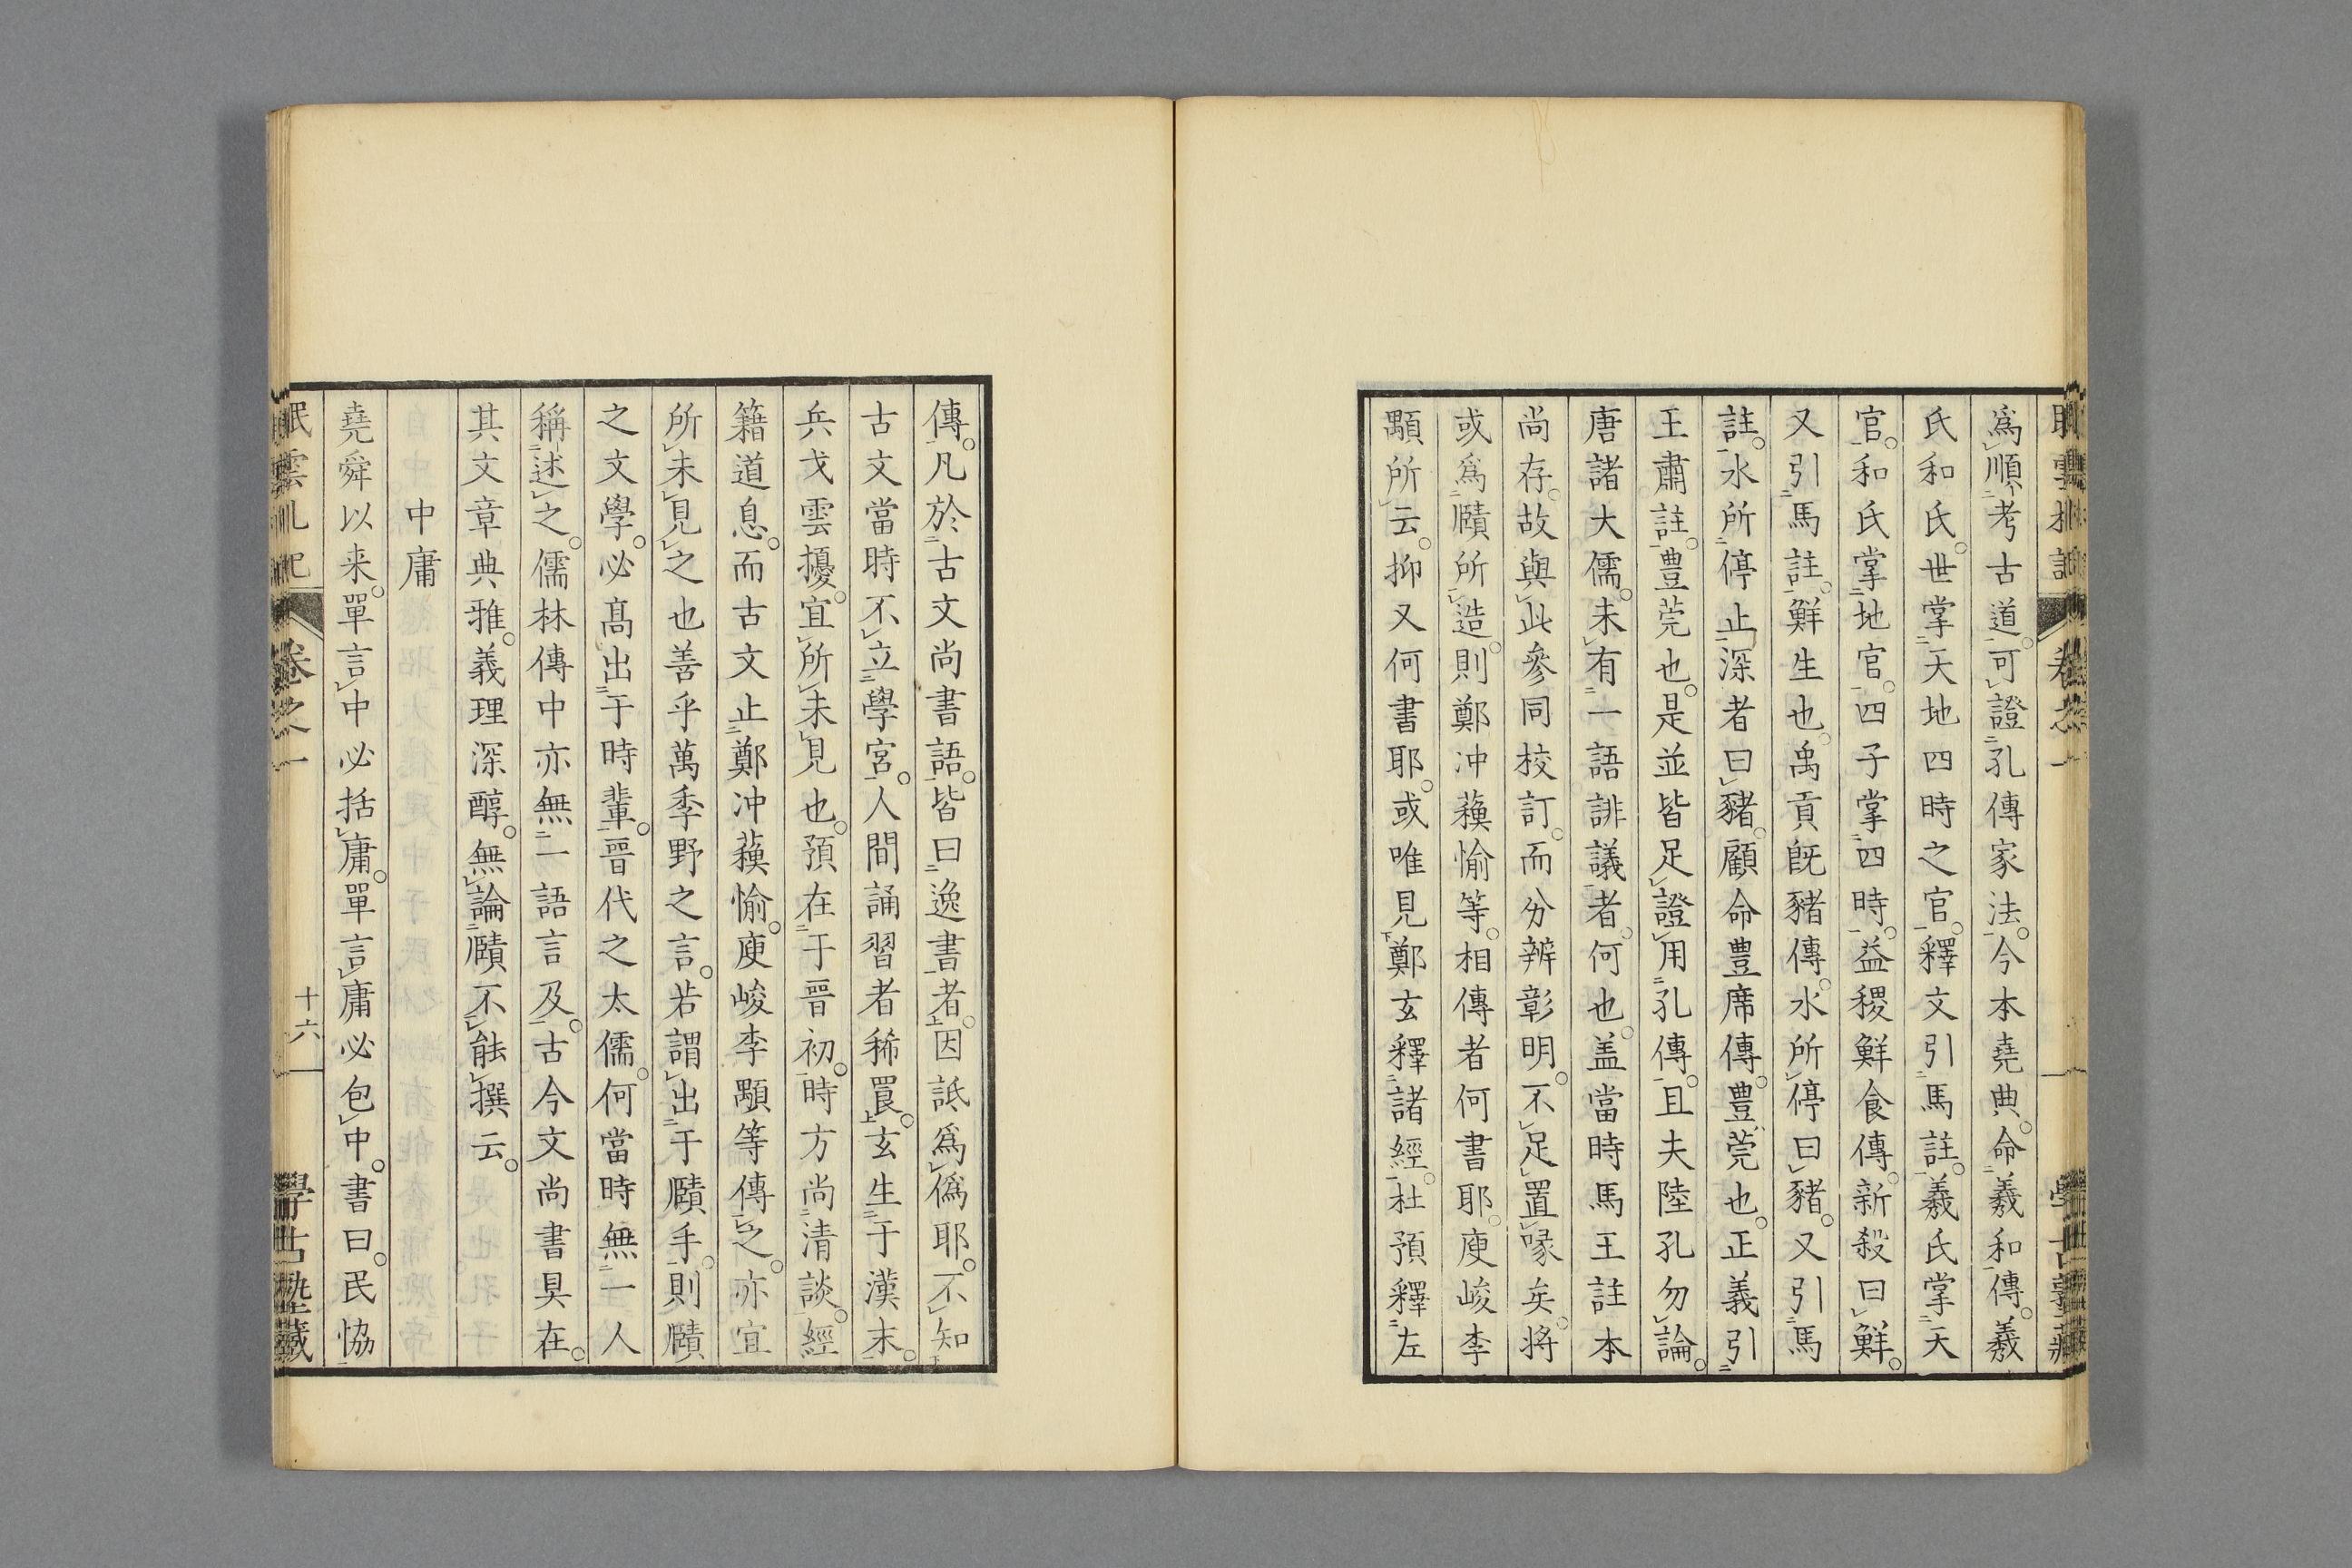 爲順考古道。可證孔傳家法。今本堯典。命羲和傳。羲
氏和氏。世掌天地四時之官。釋文引馬註。羲氏掌天
官。和氏掌地官。四子掌四時。益稷鮮食傳。新殺曰鮮。
又引馬註。鮮生也。禹貢既豬傳。水所停曰豬。又引馬
註。水所停止深者曰豬。顧命豊席傳。豊莞也。正義引
王肅註。豊莞也。是並皆足證用孔傳。且夫陸孔勿論。
唐諸大儒。未有一語誹議者。何也。盖當時馬王註本
尚存。故與此參同校訂。而分辨彰明。不足置喙矣。将
或爲賾所造。則鄭冲蘓愉等。相傳者何書耶。庾峻李
顒所云。抑又何書耶。或唯見鄭玄釋諸經。杜預釋左
傳。凡於古文尚書語。皆曰逸書者。因詆爲僞耶。不知
古文當時不立學宮。人間誦習者稀罠。玄生于漢末。
兵戈雲擾。宜所未見也。預在于晋初。時方尚清談。經
籍道息。而古文止鄭冲蘓愉。庾峻李顒等傳之。亦宜
所未見之也善乎萬季野之言。若謂出于賾手。則賾
之文學。必高出于時輩。晋代之大儒。何當時無一人
稱述之。儒林傳中亦無一語言及。古今文尚書具在。
其文章典雅。義理深醇。無論賾不能撰云。
中庸
堯舜以来。單言中必括庸。單言庸必包中。書曰。民恊
眠雲札記 卷之一 十六 學古塾藏